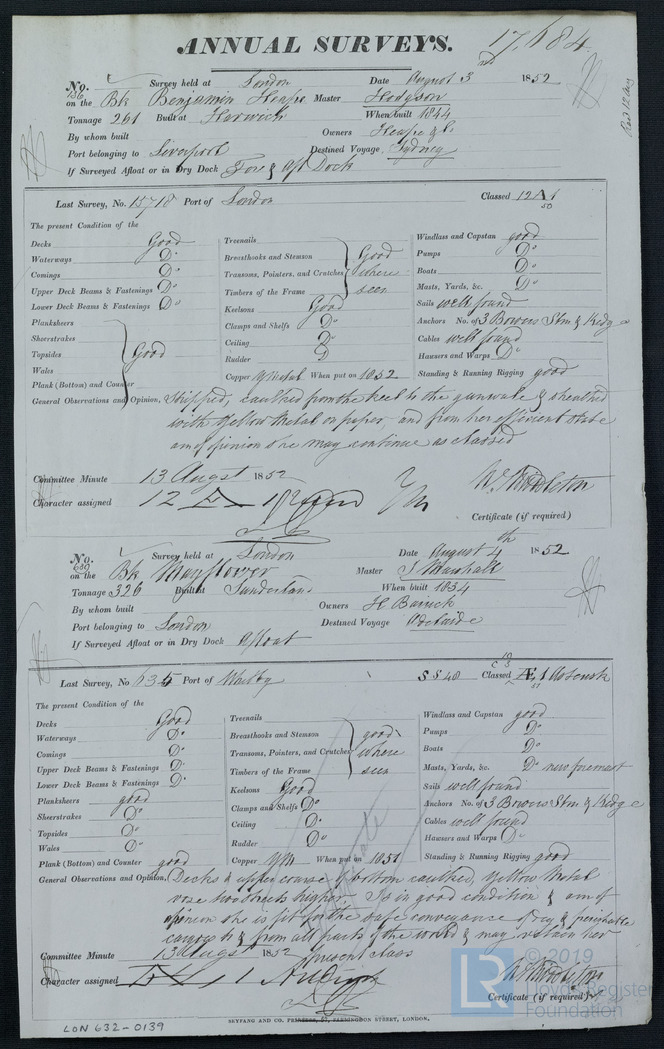 17,684
ANNUAL SURVEYS.
No. 186 Survey held at London Date August 3rd 1852
on the Bk Benjamin Heape Master Hodgson
Tonnage 261 Built at Harwich When built 1844
By whom built Owners Heape & Co
Port belonging to Liverpool Destined Voyage Sydney
If Surveyed Afloat or in Dry Dock Fore & Aft Dock
Last Survey, No. 15718 Port of London Classed 12 A 1
50
The present Condition of the
Decks Good
Waterways Do
Comings Do
Upper Deck Beams & Fastenings Do
Lower Deck Beams & Fastenings Do
Planksheers
Sheerstrakes
Topsides Good
Wales
Plank (Bottom) and Counter
Treenails
Breasthooks and Stemson Good
Transoms, Pointers, and Crutches where
Timbers of the Frame seen
Keelsons Good
Clamps and Shelfs Do
Ceiling Do
Rudder Do
Copper Y Metal When put on 1852
Windlass and Capstan good
Pumps Do
Boats Do
Masts, Yards, &c. Do
Sails well found
Anchors No. of 3 Bowers Stm & Kedge
Cables well found
Hawsers and Warps Do
Standing & Running Rigging good
General Observations and Opinion, Stripped, caulked from the keel to the gunwale & sheathed
with Yellow Metal on paper, and from her efficient state
am of opinion she may continue as classed
Committee Minute 13 Augst 1852
Character assigned 12 A 1
Certificate (if required)
No. 689 Survey held at London Date August 4th 1852
on the Bk Mayflower Master J Marshall
Tonnage 326 Built at Sunderland When built 1834
By whom built Owners H Barrick
Port belonging to London Destined Voyage Adelaide
If Surveyed Afloat or in Dry Dock Afloat
Last Survey, No 635 Port of Whitby SS 48 Classed Æ 1
51
The present Condition of the
Decks Good
Waterways Do
Comings Do
Upper Deck Beams & Fastenings Do
Lower Deck Beams & Fastenings Do
Planksheers good
Sheerstrakes Do
Topsides Do
Wales Do
Plank (Bottom) and Counter good
Treenails
Breasthooks and Stemson good
Transoms, Pointers, and Crutches where
Timbers of the Frame seen
Keelsons Good
Clamps and Shelfs Do
Ceiling Do
Rudder Do
Copper YM When put on 1851
Windlass and Capstan good
Pumps Do
Boats Do
Masts, Yards, &c. Do new foremast
Sails well found
Anchors No. of 3 Bowers Stm & Kedge
Cables well found
Hawsers and Warps Do
Standing & Running Rigging good
General Observations and Opinion, Decks & upper course of bottom caulked, Yellow Metal
rose two streaks higher. Is in good condition & am of
opinion she is fit for the safe conveyance of dry & perishable
cargoes to & from all parts of the world & may retain her
present class
Committee Minute 13 Augst 1852
Character assigned Æ 1
Certificate (if required)
SEYFANG AND CO. PRINTERS, 57, FARRINGDON STREET, LONDON.
LON 632-0139
© 2019
LR
Lloyd's Register
Foundation